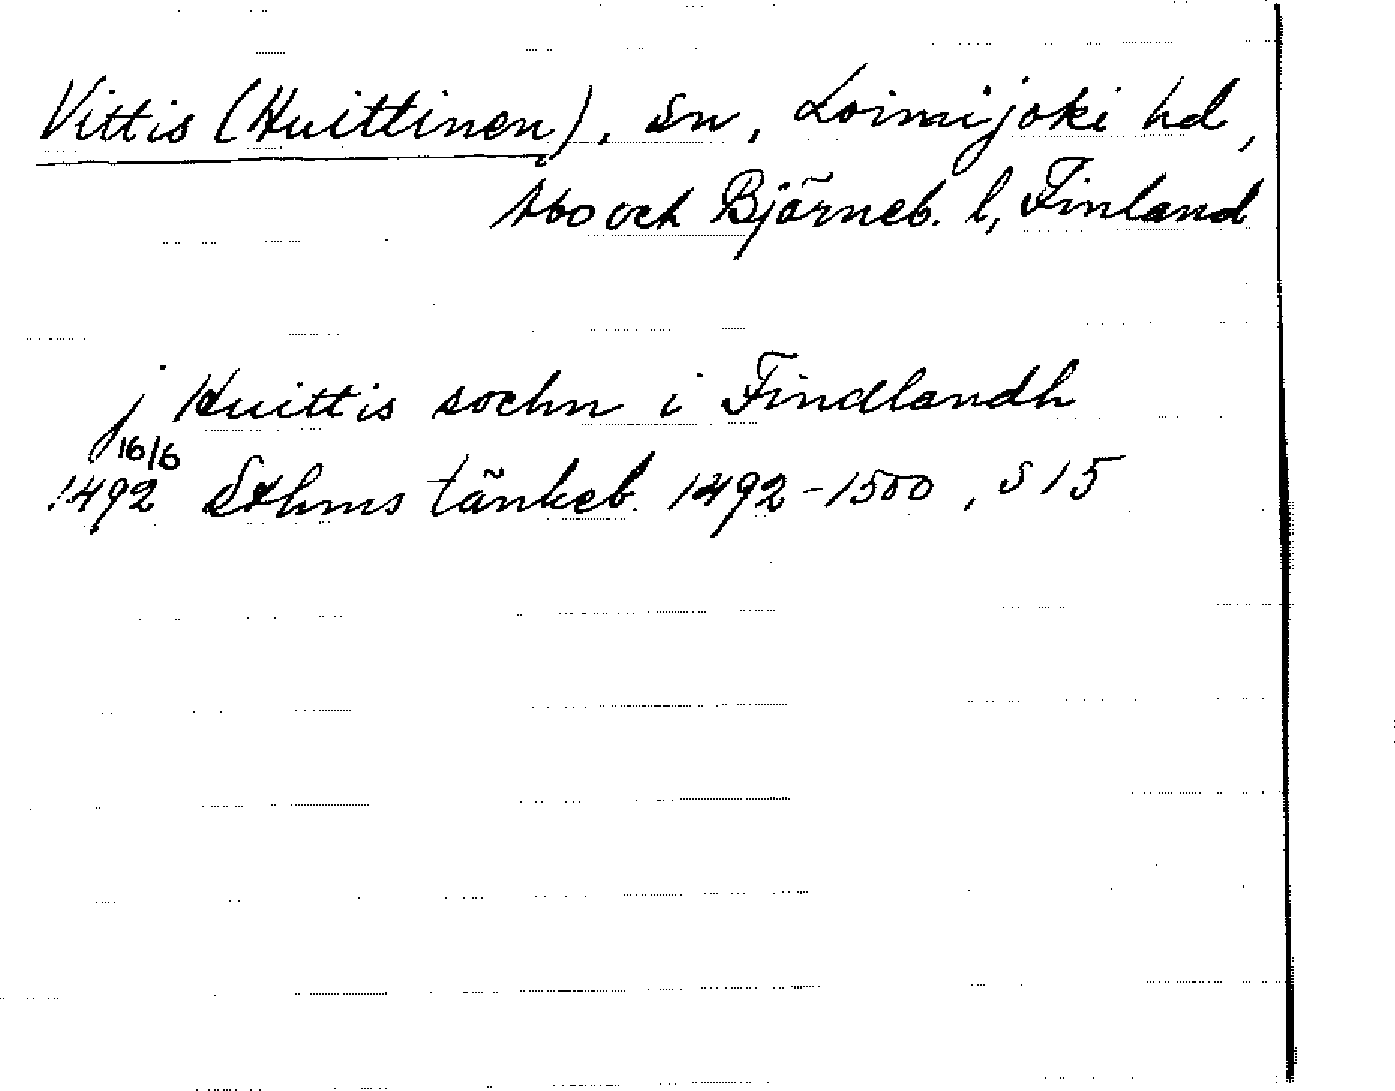 Vittis (Huittinen), sn, Loimijoki hd,
Åbo och Björneb. l, Finland
j Huittis sochn i Findlandh
16/6
1492 Sthms tänkeb. 1492-1500, s 15